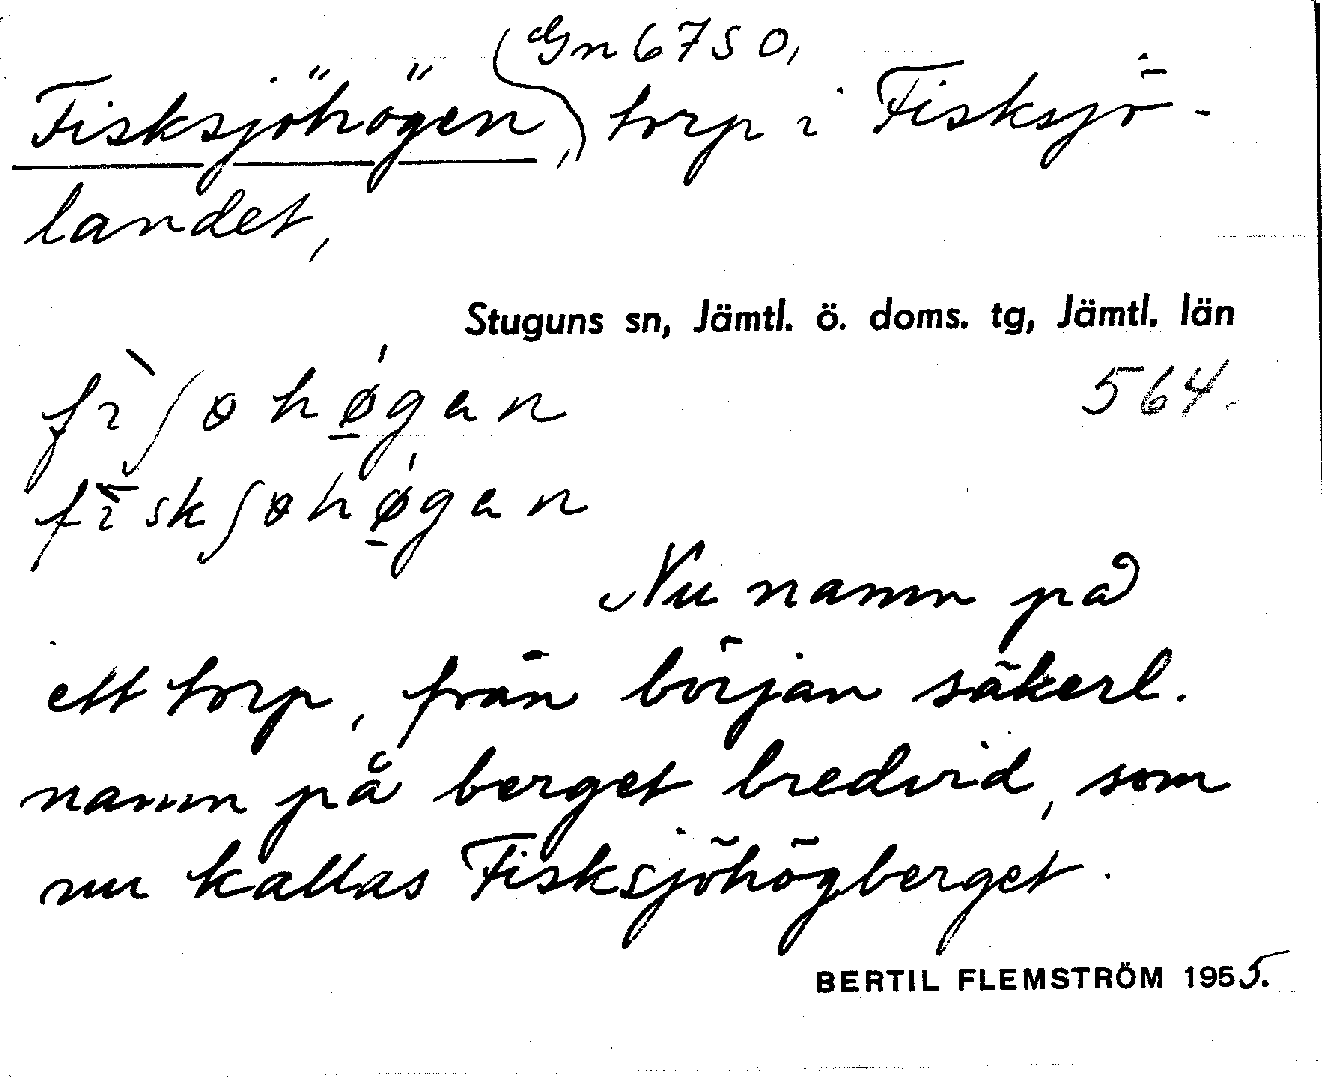 Gn 6750,
Fisksjöhögen, torp i Fisksjö-
landet,
Stuguns sn, Jämtl. ö. doms. tg, Jämtl. län
564.
Nu namn på
ett torp, från början säkerl.
namn på berget bredvid, som
nu kallas Fisksjöhögberget.
BERTIL FLEMSTRÖM 1955.